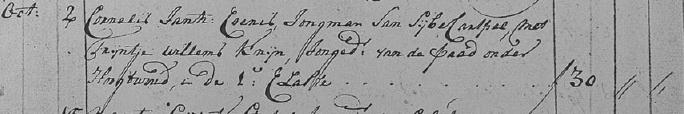 Oct: 2 Cornelis Jantz: Eenis, Jongman van Sijbe Carspel, met
Trijntje Willems Knijn, Jonged: van de Paad onder
Hoogtwoud, in de 1e: Classe . . . . . . . . . f 30 " "